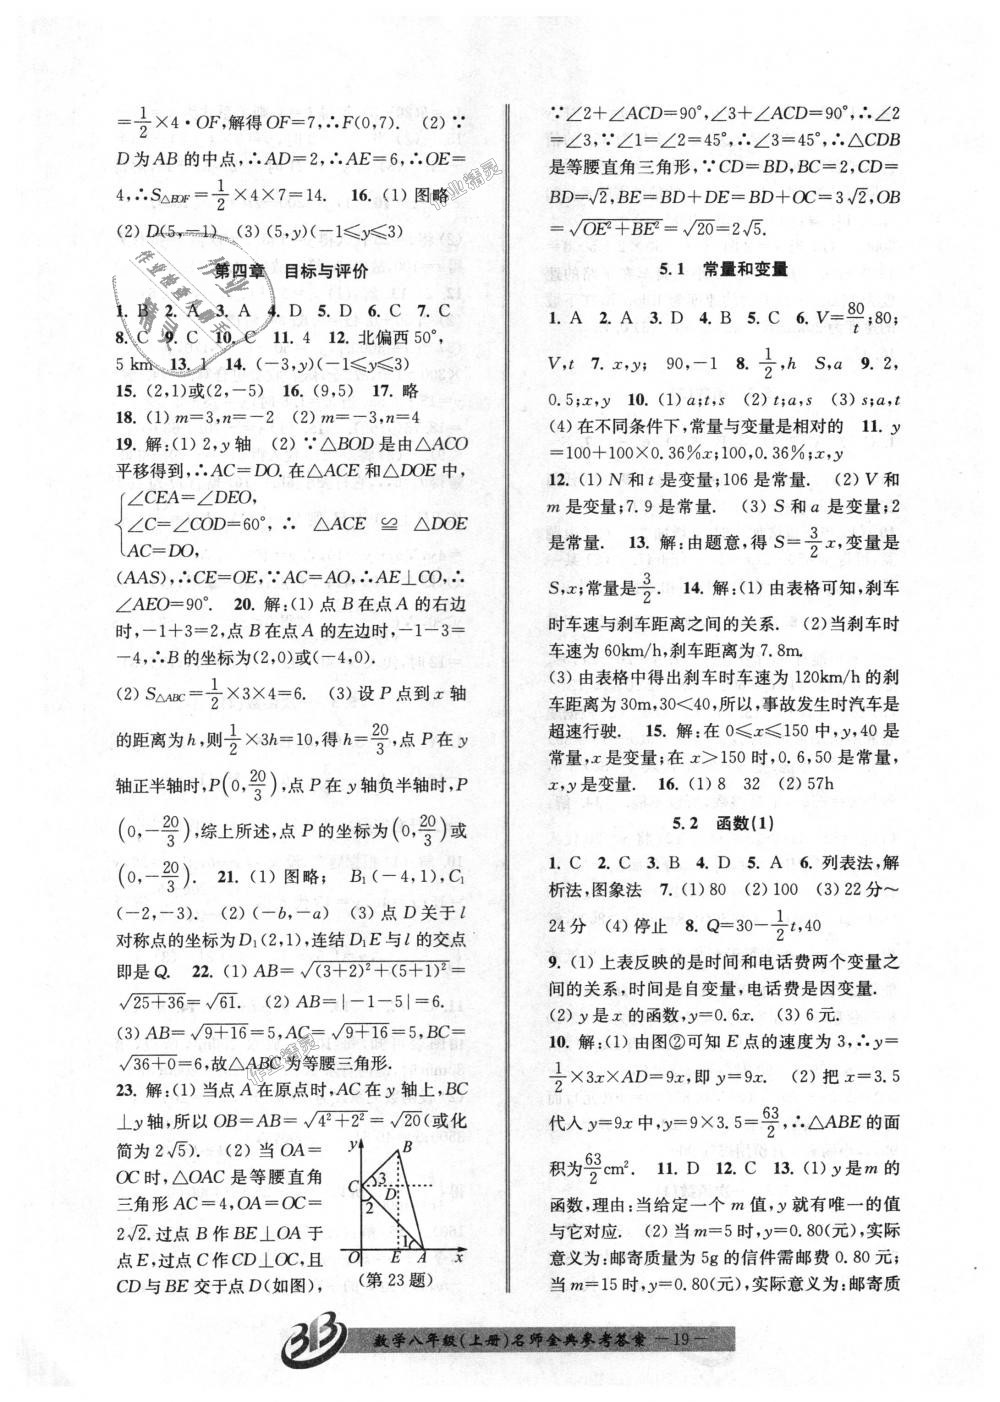 =1/2×4·OF,解得OF=7,∴F(0,7). (2)∵
D为AB的中点,∴AD=2,∴AE=6,∴OE=
4,∴S△EOF=1/2×4×7=14. 16. (1)图略
(2)D(5,-1) (3)(5,y)(-1≤y≤3)
第四章 目标与评价
1. B 2. A 3. A 4. D 5. D 6. C 7. C
8. C 9. C 10. C 11. 4 12. 北偏西50°,
5 km 13. 1 14. (-3,y)(-1≤y≤3)
15. (2,1)或(2,-5) 16. (9,5) 17. 略
18. (1)m=3,n=-2 (2)m=-3,n=4
19. 解:(1)2,y轴 (2)∵△BOD是由△ACO
平移得到,∴AC=DO.在△ACE和△DOE中,
∠CEA=∠DEO,
∠C=∠COD=60°, ∴ △ACE ≌ △DOE
AC=DO,
(AAS),∴CE=OE,∵AC=AO,∴AE⊥CO,∴
∠AEO=90°. 20. 解:(1)点B在点A的右边
时,-1+3=2,点B在点A的左边时,-1-3=
-4,∴B的坐标为(2,0)或(-4,0).
(2)S△ABC=1/2×3×4=6. (3)设P点到x轴
的距离为h,则1/2×3h=10,得h=20/3,点P在y
轴正半轴时,P(0,20/3),点P在y轴负半轴时,P
(0,-20/3),综上所述,点P的坐标为(0,20/3)或
(0,-20/3). 21. (1)图略; B₁(-4,1),C₁
(-2,-3). (2)(-b,-a) (3)点D关于l
对称点的坐标为D₁(2,1),连结D₁E与l的交点
即是Q. 22. (1)AB=√((3+2)²+(5+1)²)=
√(25+36)=√61. (2)AB=|-1-5|=6.
(3)AB=√(9+16)=5,AC=√(9+16)=5,BC=
√(36+0)=6,故△ABC为等腰三角形.
23. 解:(1)当点A在原点时,AC在y轴上,BC
⊥y轴,所以OB=AB=√(4²+2²)=√20(或化
简为2√5). (2)当OA=
OC时,△OAC是等腰直角
三角形AC=4,OA=OC=
2√2.过点B作BE⊥OA于
点E,过点C作CD⊥OC,且
CD与BE交于点D(如图),
y B
C 3 D
2
1
O E A x
(第23题)
∵∠2+∠ACD=90°,∠3+∠ACD=90°,∴∠2
=∠3,∵∠1=∠2=45°,∴∠3=45°,∴△CDB
是等腰直角三角形,∵CD=BD,BC=2,CD=
BD=√2,BE=BD+DE=BD+OC=3√2,OB
=√(OE²+BE²)=√20=2√5.
5.1 常量和变量
1. A 2. A 3. D 4. B 5. C 6. V=80/t;80;
V,t 7. x,y; 90,-1 8. 1/2,h S,a 9. 2,
0.5;x,y 10. (1)a;t,s (2)t;a,s (3)s;a,t
(4)在不同条件下,常量与变量是相对的 11. y
=100+100×0.36%x;100,0.36%;x,y
12. (1)N和t是变量;106是常量. (2)V和
m是变量;7.9是常量. (3)S和a是变量;2
是常量. 13. 解:由题意,得S=3/2x,变量是
S,x;常量是3/2. 14. 解:(1)由表格可知,刹车
时车速与刹车距离之间的关系. (2)当刹车时
车速为60km/h,刹车距离为7.8m.
(3)由表格中得出刹车时车速为120km/h的刹
车距离为30m,30<40,所以,事故发生时汽车是
超速行驶. 15. 解:在0≤x≤150中,y,40是
常量,x是变量;在x>150时,0.6,50是常量,
x,y是变量. 16. (1)8 32 (2)57h
5.2 函数(1)
1. C 2. C 3. B 4. D 5. A 6. 列表法,解
析法,图象法 7. (1)80 (2)100 (3)22分~
24分 (4)停止 8. Q=30-1/2t,40
9. (1)上表反映的是时间和电话费两个变量之
间的关系,时间是自变量,电话费是因变量.
(2)y是x的函数,y=0.6x. (3)6元.
10. 解:(1)由图②可知E点的速度为3,∴y=
1/2×3x×AD=9x,即y=9x. (2)把x=3.5
代人y=9x中,y=9×3.5=63/2,∴△ABE的面
积为63/2cm². 11. D 12. C 13. (1)y是m的
函数,理由:当给定一个m值,y就有唯一的值
与它对应. (2)当m=5时,y=0.80(元),实际
意义为:邮寄质量为5g的信件需邮费0.80元;
当m=15时,y=0.80(元),实际意义为:邮寄质
数学八年级(上册)名师金典参考答案 —19—